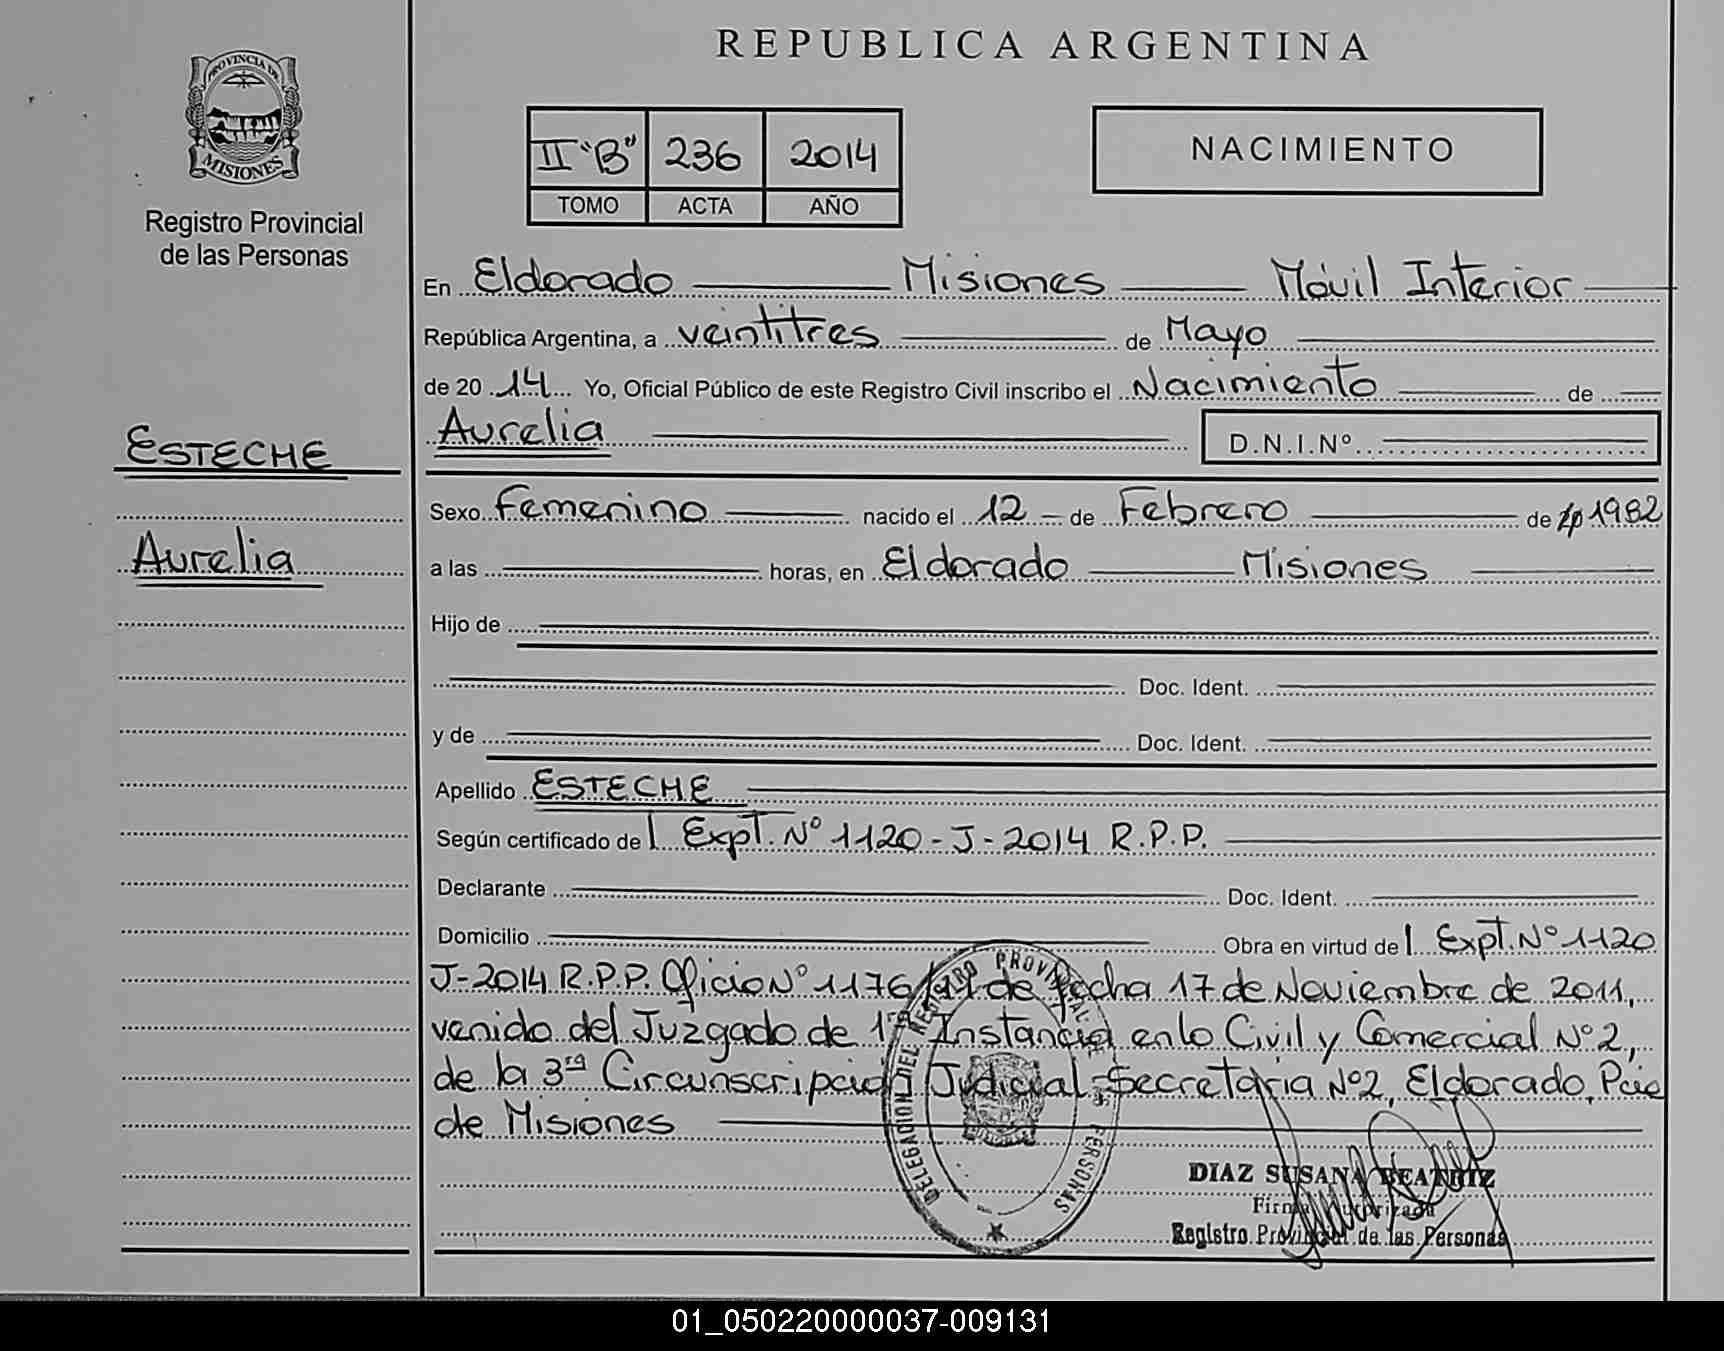 REPUBLICA ARGENTINA
PROVINCIA DE
MISIONES
Registro Provincial
de las Personas
II "B" 236 2014
TOMO ACTA AÑO
NACIMIENTO
En Eldorado Misiones Móvil Interior
República Argentina, a veintitres de Mayo
de 20 14 Yo, Oficial Público de este Registro Civil inscribo el Nacimiento de
Aurelia D.N.I.Nº
ESTECHE
Aurelia
Sexo Femenino nacido el 12 de Febrero de 1982
a las horas, en Eldorado Misiones
Hijo de
Doc. Ident.
y de Doc. Ident.
Apellido ESTECHE
Según certificado de Expt. Nº 1120-J-2014 R.P.P.
Declarante Doc. Ident.
Domicilio Obra en virtud de Expt. Nº 1120
J-2014 R.P.P. Oficio Nº 1176/11 de fecha 17 de Noviembre de 2011,
venido del Juzgado de 1ra Instancia en lo Civil y Comercial Nº 2,
de la 3ra Circunscripción Judicial Secretaria Nº2, Eldorado, Pcia
de Misiones
DELEGACION DEL REGISTRO PROVINCIAL DE LAS PERSONAS
DIAZ SUSANA BEATRIZ
Firma Autorizada
Registro Provincial de las Personas
01_050220000037-009131